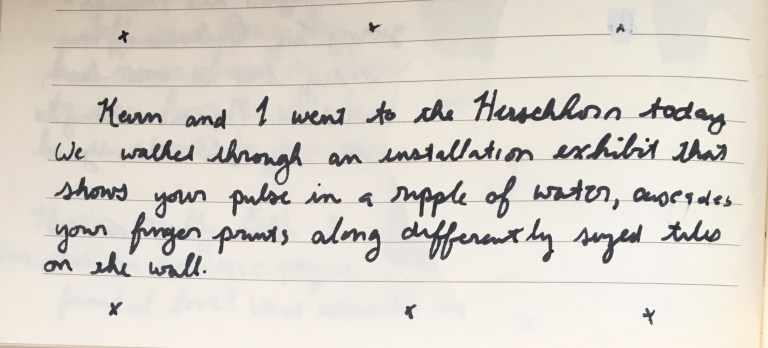 Kevin and I went to the Herschhorn today
We walked through an installation exhibit that
shows your pulse in a ripple of water, cascades
your finger prints along differently sized tiles
on the wall.